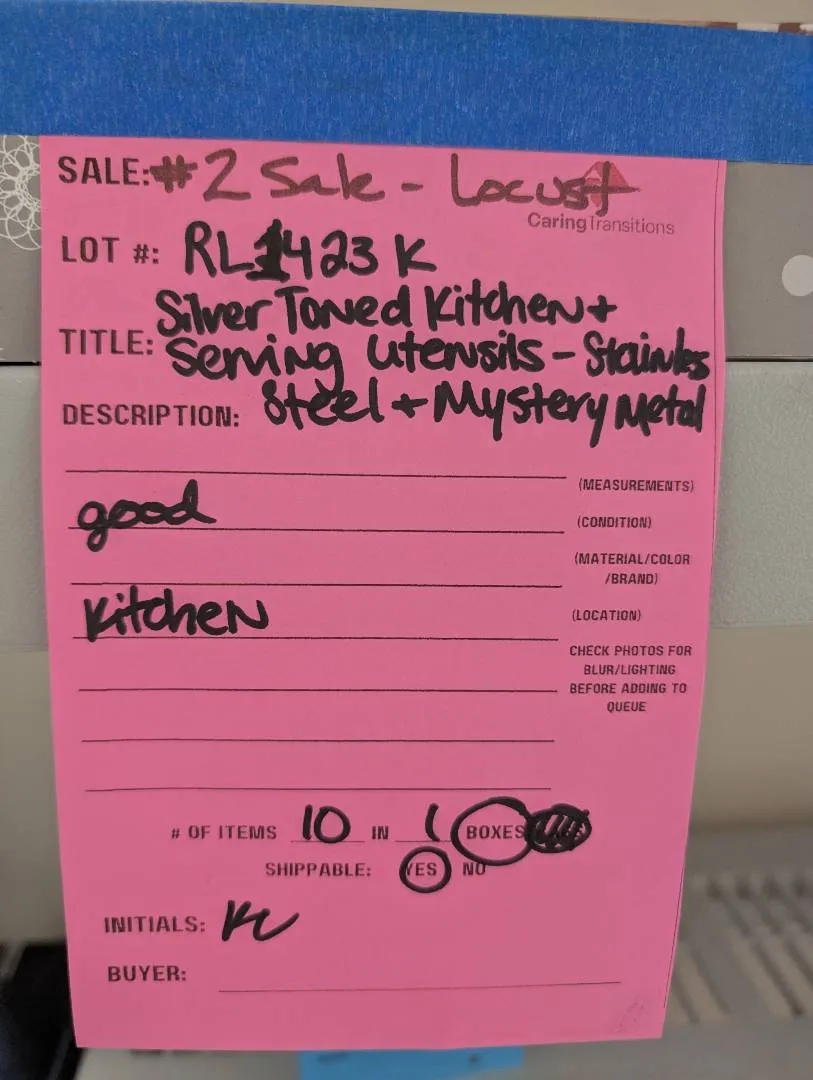 SALE: #2 Sale - Locust
CaringTransitions
LOT #: RL1423 K
Silver Toned Kitchen +
TITLE: Serving Utensils - Stainless
DESCRIPTION: Steel + Mystery Metal
(MEASUREMENTS)
good (CONDITION)
(MATERIAL/COLOR
/BRAND)
Kitchen (LOCATION)
CHECK PHOTOS FOR
BLUR/LIGHTING
BEFORE ADDING TO
QUEUE
# OF ITEMS 10 IN 1 BOXES
SHIPPABLE: YES NO
INITIALS: KC
BUYER: